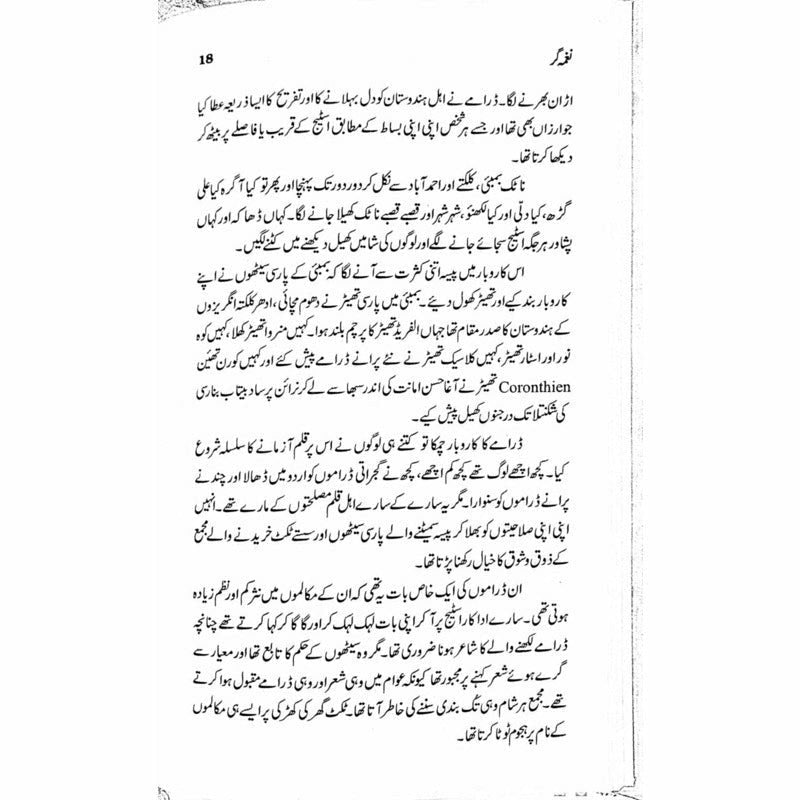 نغمہ گر 18
اڑان بھرنے لگا۔ ڈرامے نے اہل ہندوستان کو دل بہلانے کا اور تفریح کا ایسا ذریعہ عطا کیا
جو ارزاں بھی تھا اور جسے ہر شخص اپنی اپنی بساط کے مطابق اسٹیج کے قریب یا فاصلے پر بیٹھ کر
دیکھا کرتا تھا۔
ناٹک بمبئی، کلکتے اور احمد آباد سے نکل کر دور دور تک پہنچا اور پھر تو کیا آگرہ کیا علی
گڑھ، کیا دلّی اور کیا لکھنؤ، شہر شہر اور قصبے قصبے ناٹک کھیلا جانے لگا۔ کہاں ڈھاکہ اور کہاں
پشاور ہر جگہ اسٹیج سجائے جانے لگے اور لوگوں کی شامیں کھیل دیکھنے میں کٹنے لگیں۔
اس کاروبار میں پیسہ اتنی کثرت سے آنے لگا کہ بمبئی کے پارسی سیٹھوں نے اپنے
کاروبار بند کیے اور تھیٹر کھول دیئے۔ بمبئی میں پارسی تھیٹر نے دھوم مچائی، ادھر کلکتہ انگریزوں
کے ہندوستان کا صدر مقام تھا جہاں الفریڈ تھیٹر کا پرچم بلند ہوا۔ کہیں منروا تھیٹر کھلا، کہیں کوہ
نور اور اسٹار تھیٹر، کہیں کلاسیک تھیٹر نے نئے پرانے ڈرامے پیش کئے اور کہیں کورن تھئین
Coronthien تھیٹر نے آغا حسن امانت کی اندر سبھا سے لے کر نرائن پرساد بیتاب بنارسی
کی شکنتلا تک درجنوں کھیل پیش کیے۔
ڈرامے کا کاروبار چمکا تو کتنے ہی لوگوں نے اس پر قلم آزمانے کا سلسلہ شروع
کیا۔ کچھ اچھے لوگ تھے کچھ کم اچھے، کچھ نے گجراتی ڈراموں کو اردو میں ڈھالا اور چند نے
پرانے ڈراموں کو سنوارا۔ مگر یہ سارے کے سارے اہل قلم مصلحتوں کے مارے تھے۔ انہیں
اپنی اپنی صلاحیتوں کو بھلا کر پیسہ سمیٹنے والے پارسی سیٹھوں اور سستے ٹکٹ خریدنے والے مجمع
کے ذوق و شوق کا خیال رکھنا پڑتا تھا۔
ان ڈراموں کی ایک خاص بات یہ تھی کہ ان کے مکالموں میں نثر کم اور نظم زیادہ
ہوتی تھی۔ سارے اداکار اسٹیج پر آکر اپنی بات لہک لہک کر اور گا گا کر کہا کرتے تھے چنانچہ
ڈرامے لکھنے والے کا شاعر ہونا ضروری تھا۔ مگر وہ سیٹھوں کے حکم کا تابع تھا اور معیار سے
گرے ہوئے شعر کہنے پر مجبور تھا کیونکہ عوام میں وہی شعر اور وہی ڈرامے مقبول ہوا کرتے
تھے۔ مجمع ہر شام وہی تُک بندی سننے کی خاطر آتا تھا۔ ٹکٹ گھر کی کھڑکی پر ایسے ہی مکالموں
کے نام پر ہجوم ٹوٹا کرتا تھا۔